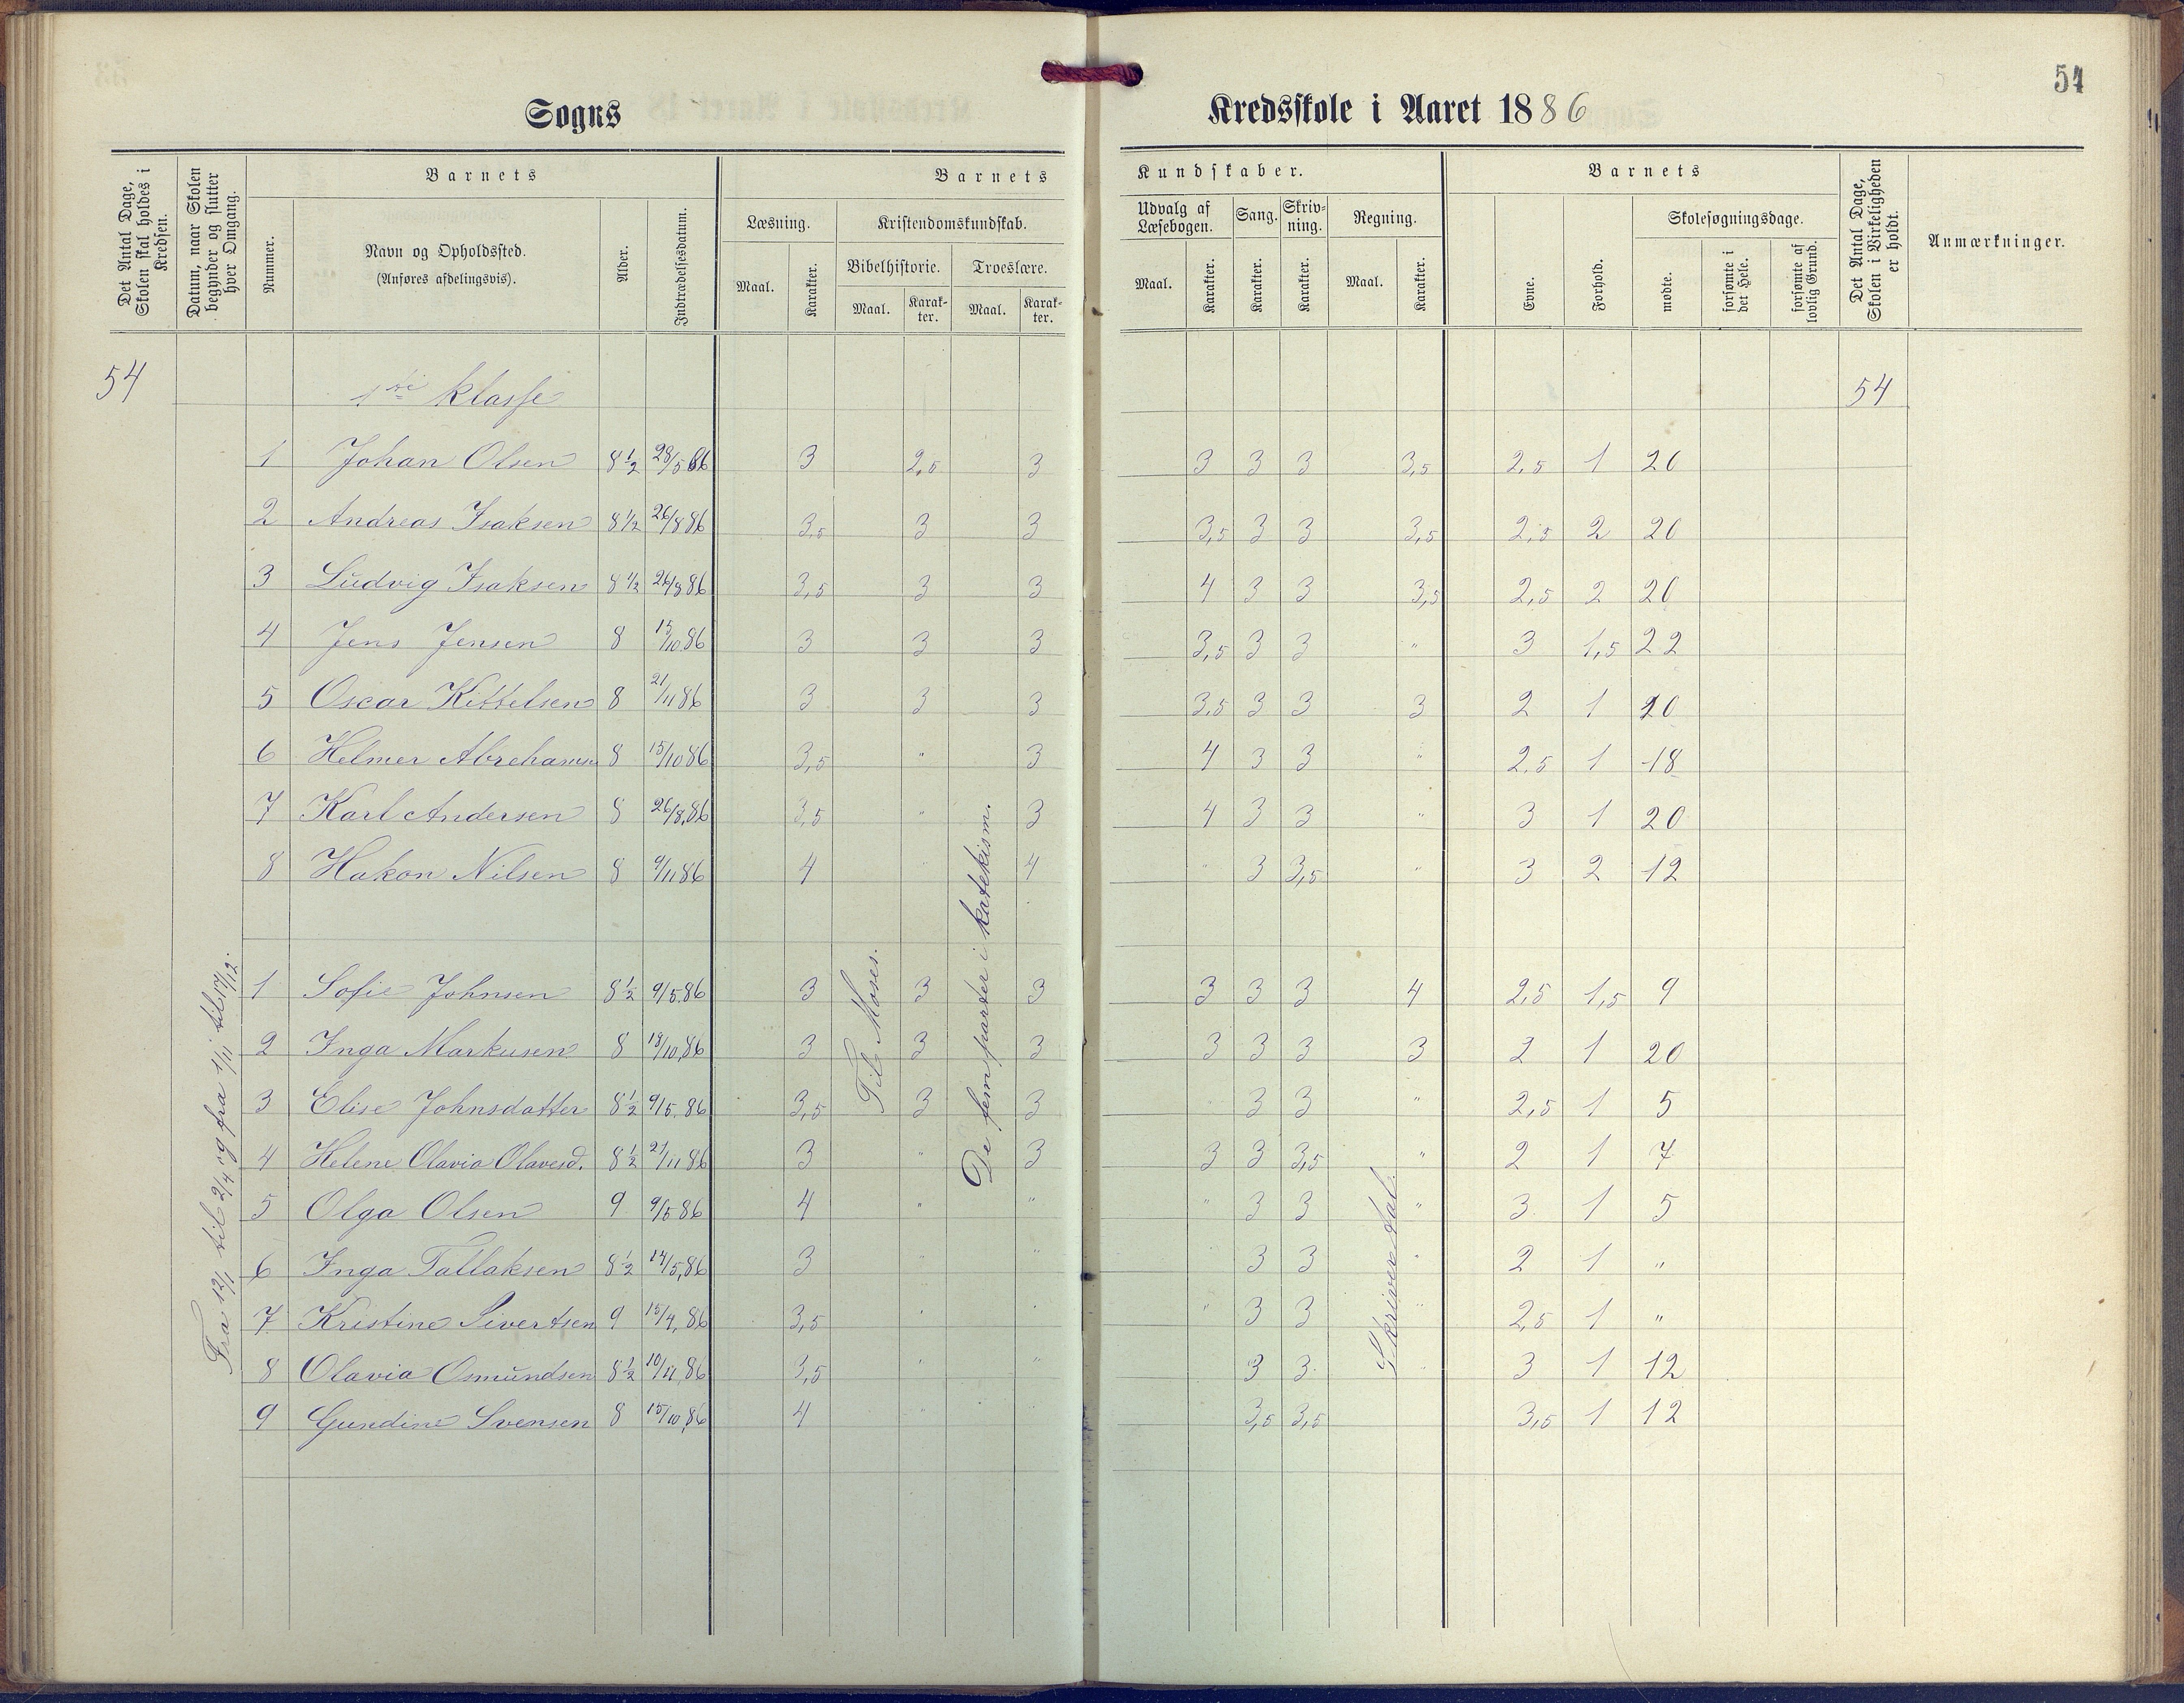 54
Sogns
Kredsskole i Aaret 1886
Det Antal Dage, Skolen skal holdes i Kredsen.
Datum, naar Skolen begynder og slutter hver Omgang.
Barnets
Nummer.
Navn og Opholdssted.
(Anføres afdelingsvis).
Alder.
Indtrædelsesdatum.
Barnets
Læsning.
Maal.
Karakter.
Kristendomskundskab.
Bibelhistorie.
Maal.
Karak-
ter.
Troeslære.
Maal.
Karak-
ter.
Kundskaber.
Udvalg af
Læsebogen.
Maal.
Karakter.
Sang.
Karakter.
Skriv-
ning.
Karakter.
Regning.
Maal.
Karakter.
Barnets
Evne.
Forhold.
Skolesøgningsdage.
mødte.
forsømte i det Hele.
forsømte af lovlig Grund.
Det Antal Dage, Skolen i Virkeligheden er holdt.
Anmærkninger.
54 1ste klasse 54
1 Johan Olsen 8 1/2 28/5 86 3 2,5 3 3 3 3 3,5 2,5 1 20
2 Andreas Isaksen 8 1/2 26/8 86 3,5 3 3 3,5 3 3 3,5 2,5 2 20
3 Ludvig Isaksen 8 1/2 26/8 86 3,5 3 3 4 3 3 3,5 2,5 2 20
4 Jens Jensen 8 15/10 86 3 3 3 3,5 3 3 " 3 1,5 22
5 Oscar Kittelsen 8 21/11 86 3 3 3 3,5 3 3 3 2 1 20
6 Helmer Abrehamsen 8 15/10 86 3,5 " 3 4 3 3 " 2,5 1 18
7 Karl Andersen 8 26/8,86 3,5 " 3 4 3 3 " 3 1 20
8 Hakon Nilsen 8 9/11 86 4 " 4 " 3 3,5 " 3 2 12
1 Sofie Johnsen 8 1/2 9/5.86 3 3 3 3 3 3 4 2,5 1,5 9
2 Inga Markusen 8 13/10,86 3 3 3 3 3 3 3 2 1 20
3 Elise Johnsdatter 8 1/2 9/5.86 3,5 3 3 " 3 3 " 2,5 1 5
4 Helene Olavia Olavesd. 8 1/2 21/11 86 3 " 3 3 3 3,5 " 2 1 7
5 Olga Olsen 9 9/5 86 4 " " " 3 3 " 3 1 5
6 Inga Tallaksen 8 1/2 14/5,86 3 " " " 3 3 " 2 1 "
7 Kristine Sivertsen 9 15/4,86 3,5 " " " 3 3 " 2,5 1 "
8 Olavia Osmundsen 8 1/2 10/11,86 3,5 " " 3 3 " 3 1 12
9 Gundine Svensen 8 15/10,86 4 " " 3,5 3,5 3,5 1 12
Fra 12/1 til 2/4 og fra 1/11 til 17/12.
Til Moses.
De fem parter i katekism.
Skriver tal.